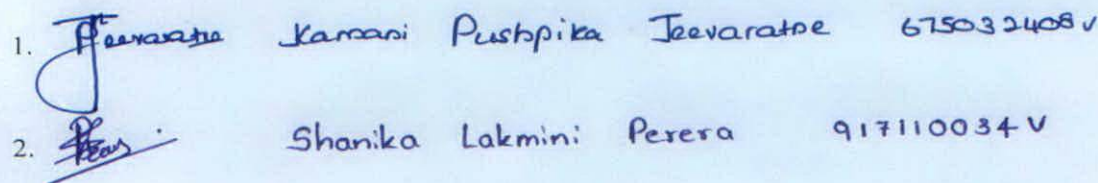 1. Jeevaratne Kamani Pushpika Jeevaratne 675032408V
2. Shanika Lakmini Perera 917110034V